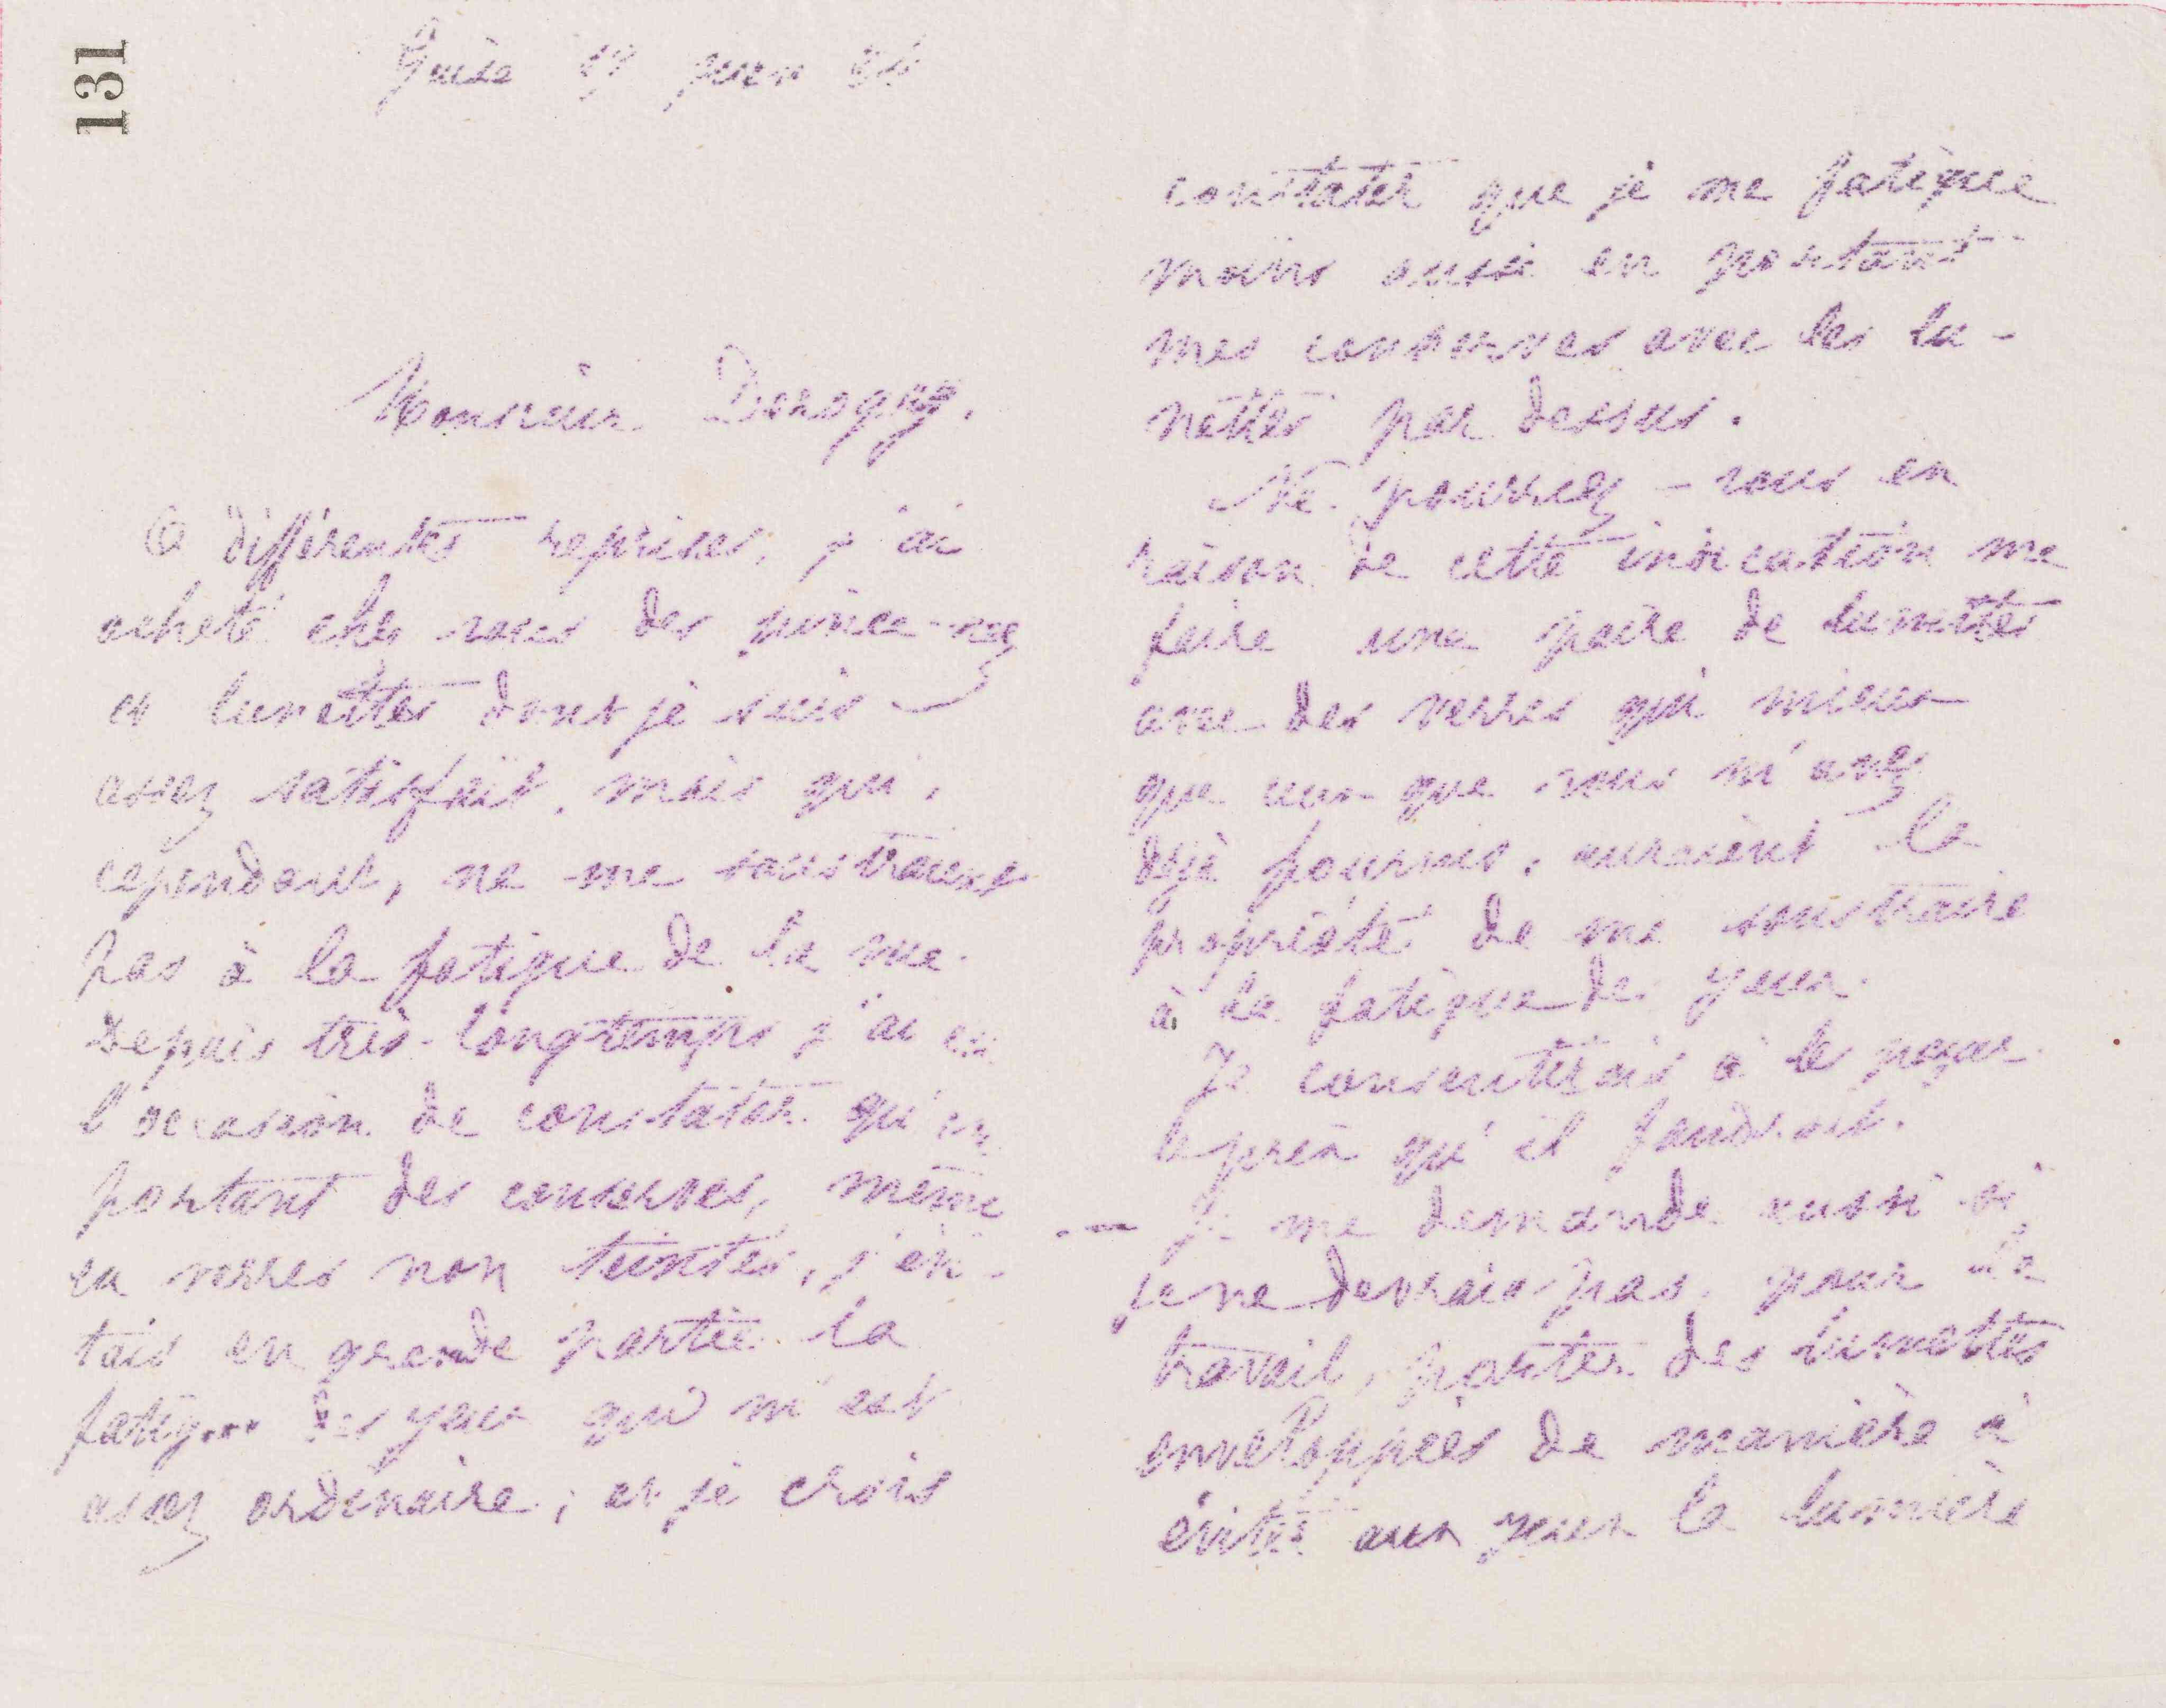 131
Guise 27 juin
Monsieur Derogy,
A différentes reprises, j'ai
acheté chez vous des pince-nez
et lunettes dont je suis
assez satisfait, mais qui,
cependant, ne me soustraient
pas à la fatigue de la vue.
Depuis très-longtemps j'ai eu
l'occasion de constater qu'en
portant des conserves, même
en verres non teintés, j'évi-
tais en grande partie la
fatigue des yeux qui m'est
assez ordinaire ; et je crois
constater que je me fatigue
moins aussi en portant
mes conserves avec les lu-
nettes par dessus.
Ne pourriez-vous en
raison de cette indication me
faire une paire de lunettes
avec des verres qui mieux
que ceux que vous m'avez
déjà fournis, auraient la
propriété de me soustraire
à la fatigue des yeux.
Je consentirais à les payer
le prix qu'il faudrait.
— Je me demande aussi si
je ne devrais pas, pour le
travail, porter des lunettes
enveloppées de manière à
éviter aux yeux la lumière